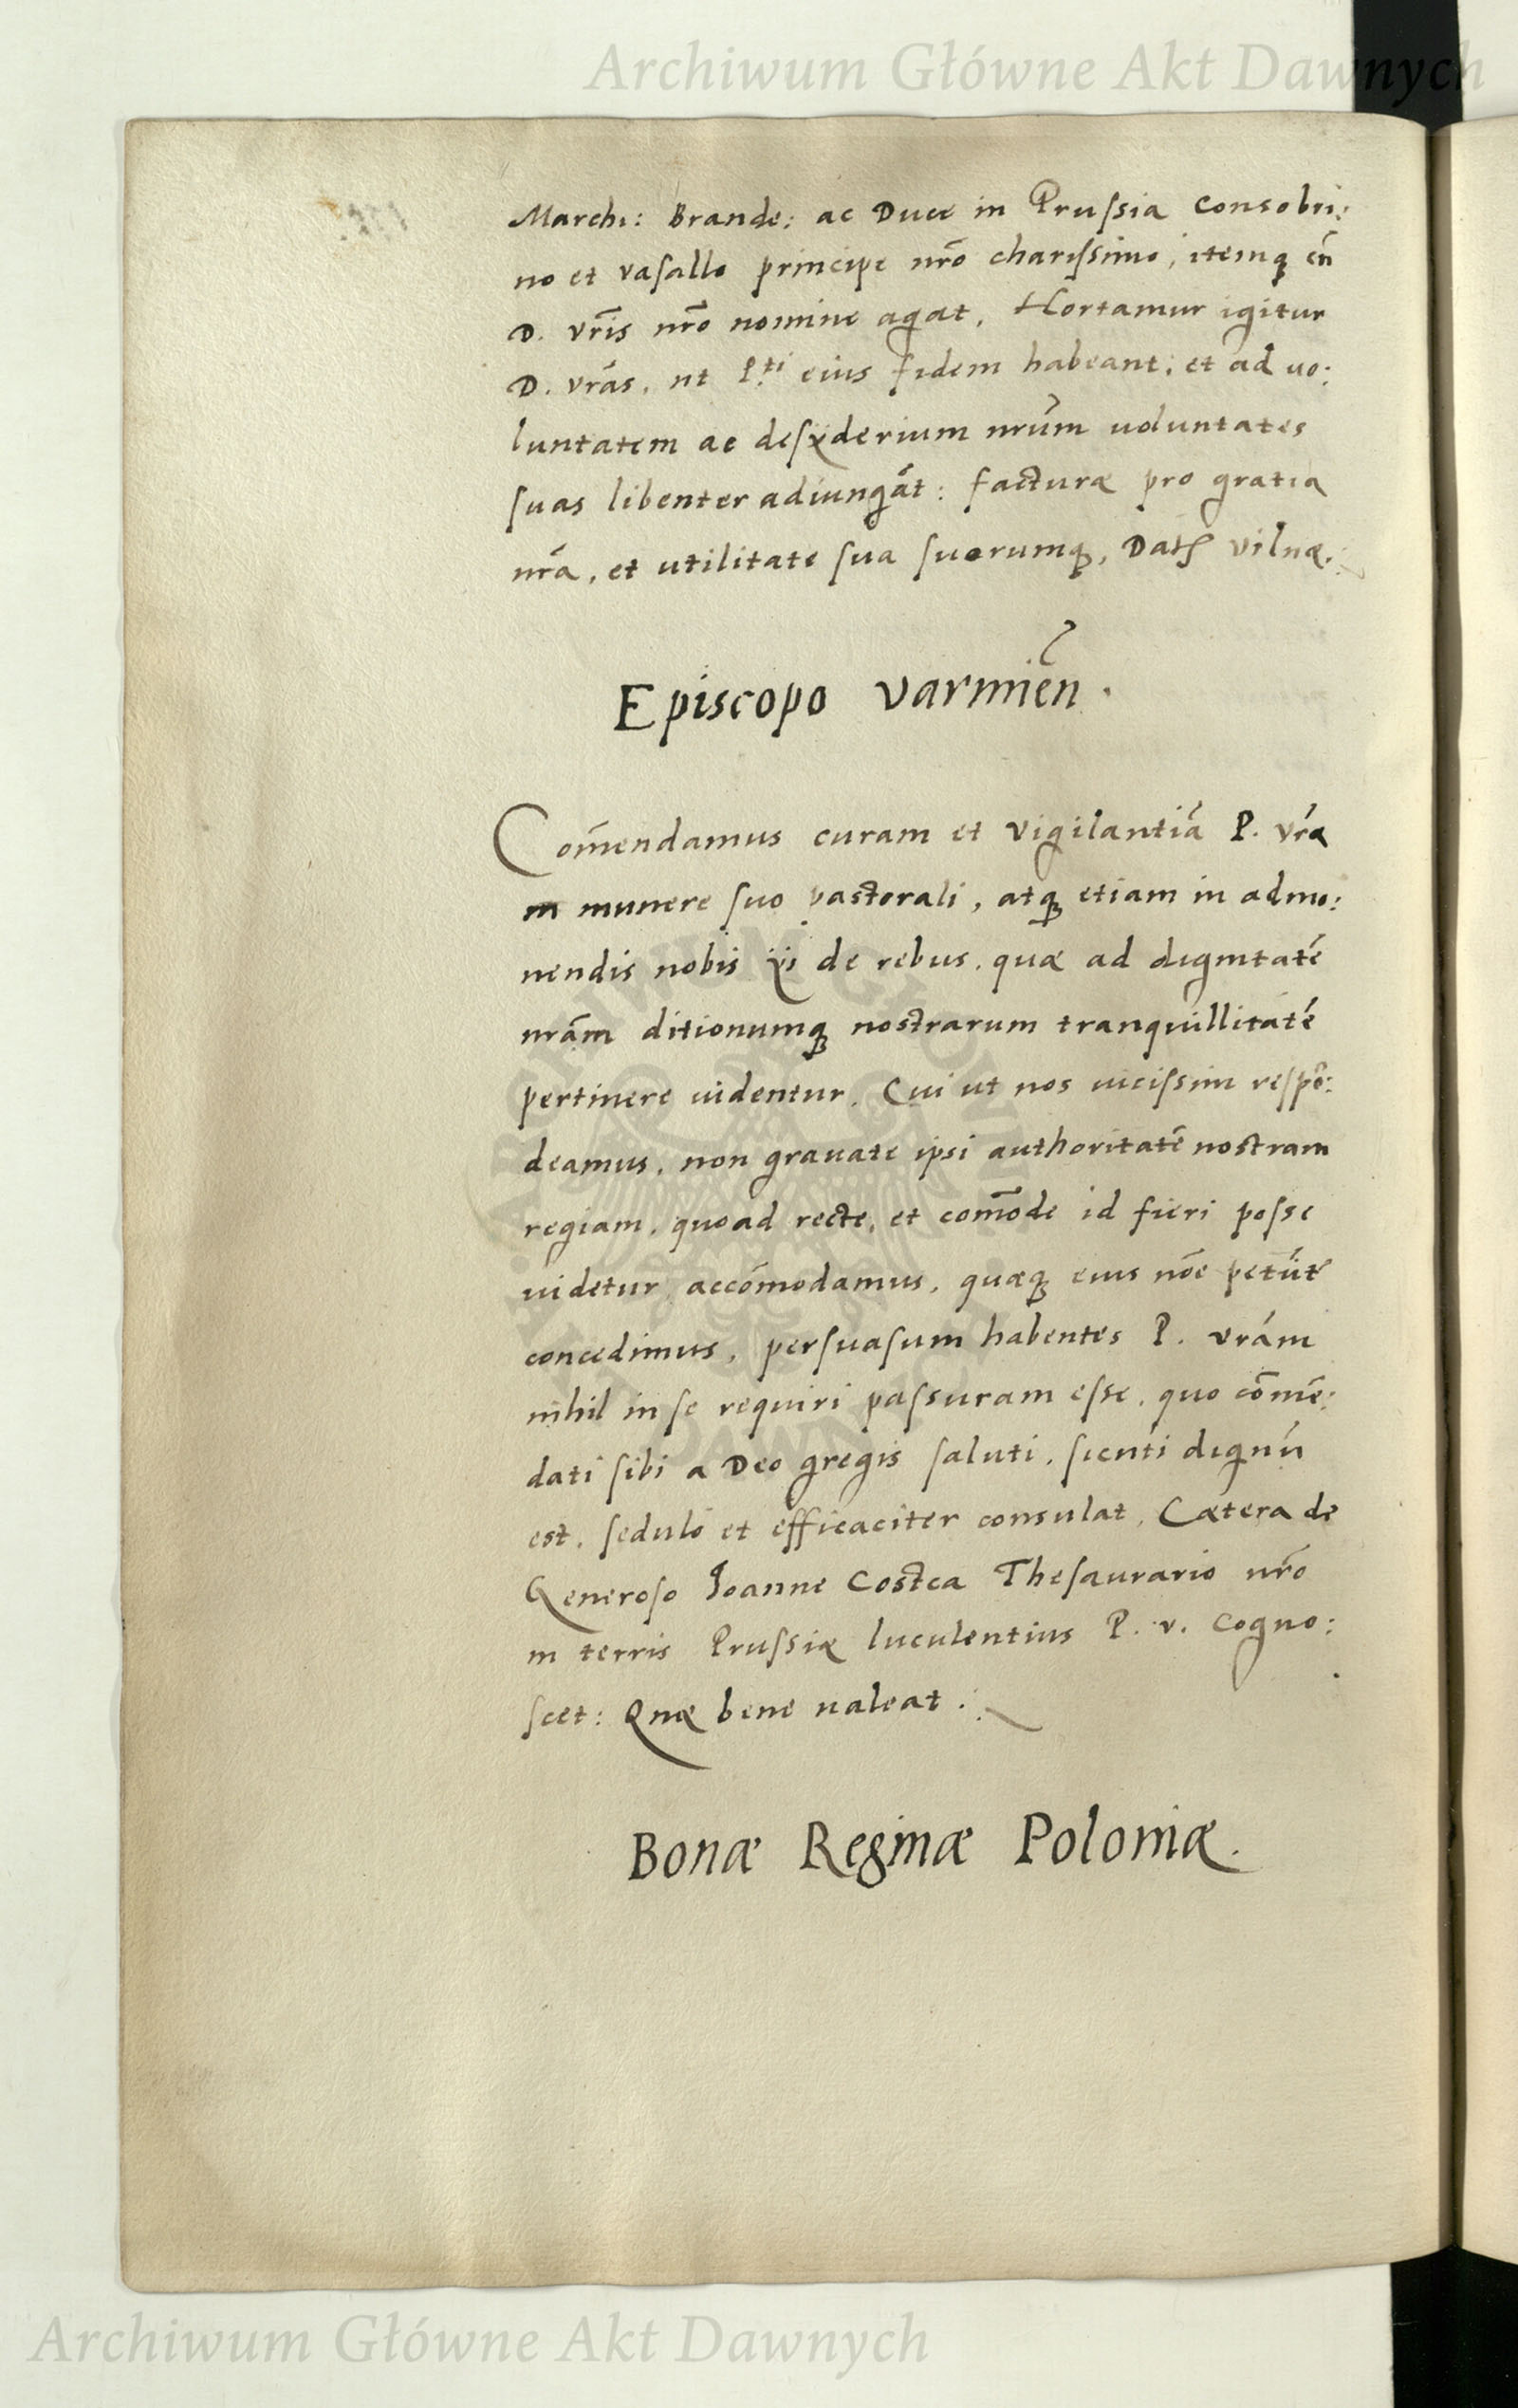 Archiwum Główne Akt Dawnych
Marchi: Brande: ac Duce in Prussia Consobri:
no et vasallo principe nr̃o charissimo, itemq́ȝ cũ
D. vr̃is nr̃o nomine agat, Hortamur igitur
D. vrãs, ut P.ti eius fidem habeant, et ad uo:
luntatem ac desÿderium nrũm uoluntates
suas libenter adiungãt: facturæ pro gratia
nrã, et utilitate sua suorumqȝ, Datȝ Vilnæ.
Episcopo Varmień.
Com̃endamus curam et vigilantiã P. vrã
in munere suo pastorali, atqȝ etiam in admo:
nendis nobis ÿs de rebus, quæ ad dignitatẽ
nrãm ditionumqȝ nostrarum tranquillitatẽ
pertinere uidentur, Cui ut nos uicissim respõ:
deamus, non grauate ipsi authoritatẽ nostram
regiam, quoad recte, et com̃ode id fieri posse
uidetur, accõmodamus, quæqȝ eius nõe petũt
concedimus, persuasum habentes P. vrãm
nihil in se requiri passuram esse, quo cõmẽ:
dati sibi a Deo gregis saluti, sicuti dignũ
est, sedulo et efficaciter consulat, Cætera de
Generoso Joanne Costca Thesaurario nr̃o
in terris Prussiæ luculentius P. v. cogno:
scet: Quæ bene ualeat.
Bonæ Reginæ Poloniæ.
Archiwum Główne Akt Dawnych